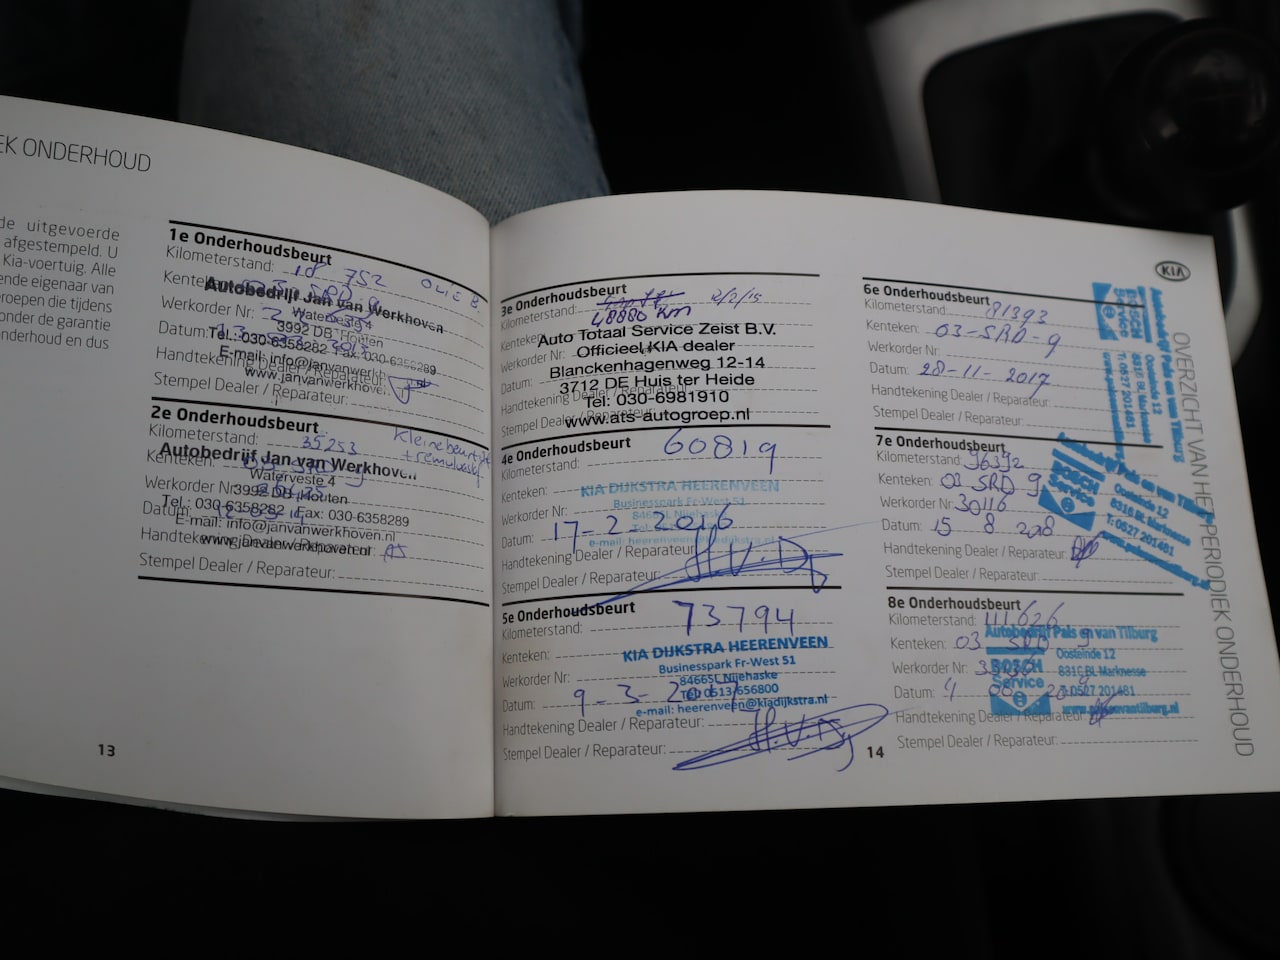 EK ONDERHOUD
de uitgevoerde
afgestempeld. U
Kia-voertuig. Alle
ende eigenaar van
roepen die tijdens
onder de garantie
nderhoud en dus
1e Onderhoudsbeurt
Kilometerstand: 18 752
Autobedrijf Jan van Werkhoven
Waterveste 4
Werkorder Nr:
3992 DB Houten
Datum:
Tel.: 030-6358282 Fax: 030-6356289
E-mail: info@janvanwerkh
Handtekening Dealer / Reparateur:
www.janvanwerkhoven.
Stempel Dealer / Reparateur:
2e Onderhoudsbeurt
Kilometerstand: 35253
Kleine beurt
Autobedrijf Jan van Werkhoven
Kenteken:
Waterveste 4
Werkorder Nr:
3992 DB Houten
Tel.: 030-6358282 Fax: 030-6358289
Datum:
E-mail: info@janvanwerkhoven.nl
www.janvanwerkhoven.nl
Stempel Dealer / Reparateur:
13
3e Onderhoudsbeurt
2/2/15
Kilometerstand: 48880 km
Auto Totaal Service Zeist B.V.
Officieel KIA dealer
Werkorder Nr:
Blanckenhagenweg 12-14
Datum:
3712 DE Huis ter Heide
Handtekening Dealer / Reparateur:
Tel: 030-6981910
www.ats-autogroep.nl
4e Onderhoudsbeurt
Kilometerstand: 60819
Kenteken:
KIA DIJKSTRA HEERENVEEN
Businesspark Fr-West 51
Werkorder Nr:
8466SL Nijehaske
Datum: 17-2-2016
e-mail: heerenveen@kiadijkstra.nl
Handtekening Dealer / Reparateur: H.V.D.
Stempel Dealer / Reparateur:
5e Onderhoudsbeurt
Kilometerstand: 73794
Kenteken:
KIA DIJKSTRA HEERENVEEN
Businesspark Fr-West 51
Werkorder Nr:
8466SL Nijehaske
Tel: 0513-656800
Datum: 9-3-2017
e-mail: heerenveen@kiadijkstra.nl
Handtekening Dealer / Reparateur:
Stempel Dealer / Reparateur: H.V.D.
14
KIA
6e Onderhoudsbeurt
Kilometerstand: 81393
Kenteken: 03-SRD-9
Werkorder Nr:
Datum: 28-11-2017
Handtekening Dealer / Reparateur:
Stempel Dealer / Reparateur:
BOSCH
Service
Autobedrijf Pals en van Tilburg
Oosteinde 12
8316 BL Marknesse
T: 0527 201481
7e Onderhoudsbeurt
Kilometerstand: 96392
Kenteken: 03 SRD 9
Werkorder Nr: 30116
Datum: 15 8 2018
Handtekening Dealer / Reparateur:
Stempel Dealer / Reparateur:
BOSCH
Service
Pals en van Tilburg
Oosteinde 12
8316 BL Marknesse
T: 0527 201481
www.palsenvantilburg.nl
8e Onderhoudsbeurt
Kilometerstand: 111.626
Kenteken: 03 SRD 9
Autobedrijf Pals en van Tilburg
Oosteinde 12
Werkorder Nr:
BOSCH
Service
8316 BL Marknesse
Datum:
T: 0527 201481
www.palsenvantilburg.nl
Handtekening Dealer / Reparateur:
Stempel Dealer / Reparateur:
OVERZICHT VAN HET PERIODIEK ONDERHOUD